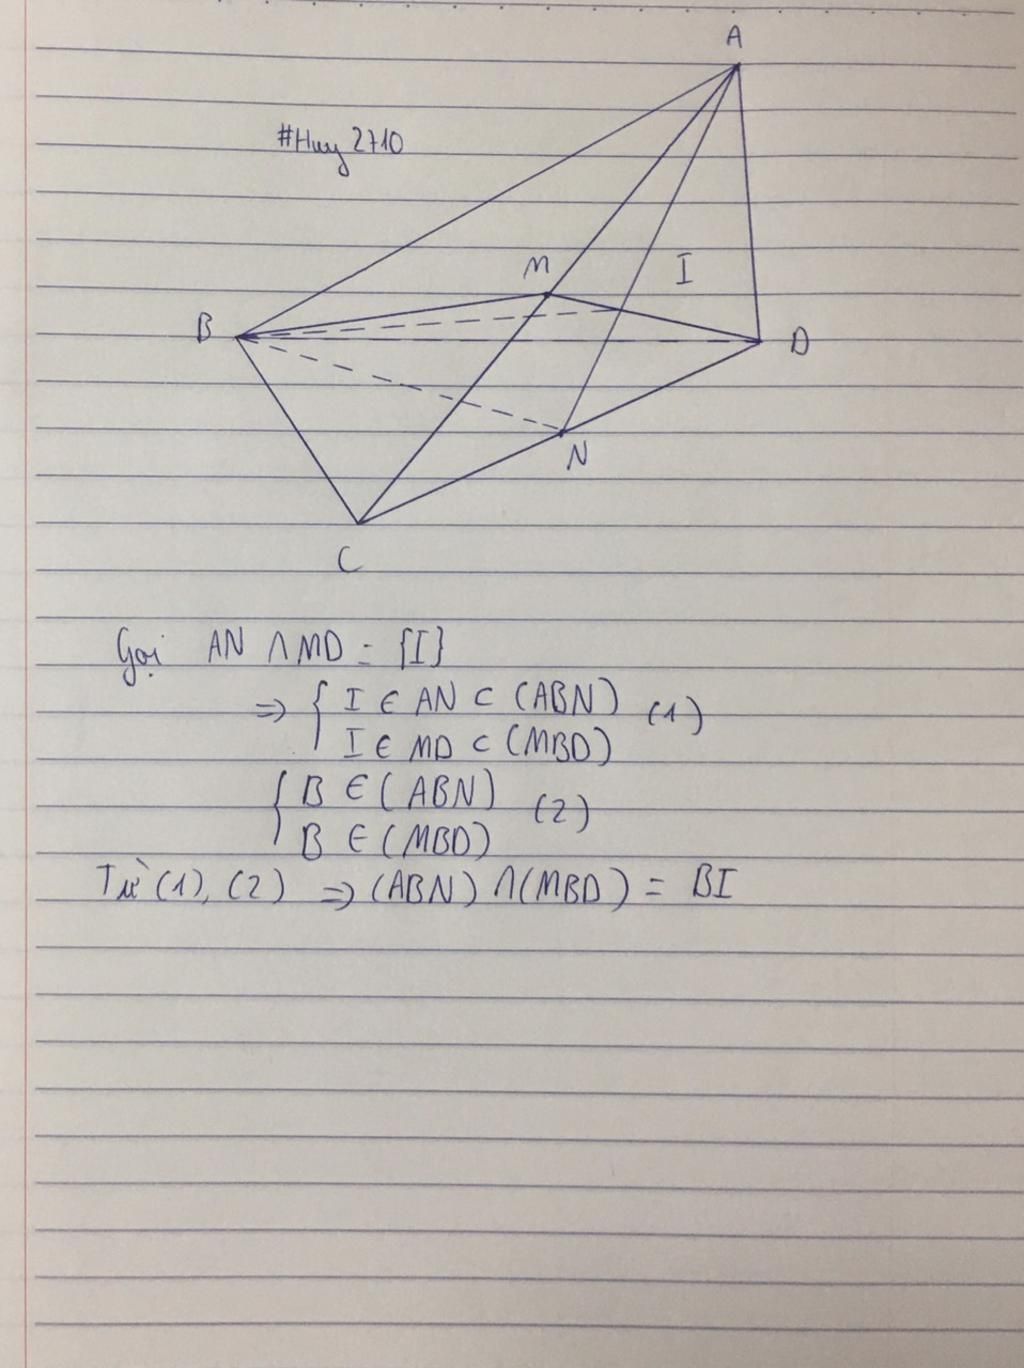 A
#Huy 2710
M
I
B
D
N
C
Gọi AN ∩ MD = {I}
=> { I ∈ AN ⊂ (ABN) (1)
I ∈ MD ⊂ (MBD)
{ B ∈ (ABN) (2)
B ∈ (MBD)
Từ (1), (2) => (ABN) ∩ (MBD) = BI